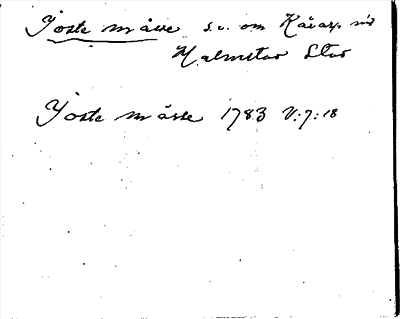 Joste måsse s.v. om Kåarp vid
Halmstad Stad
Joste måsse 1783 V:7:18